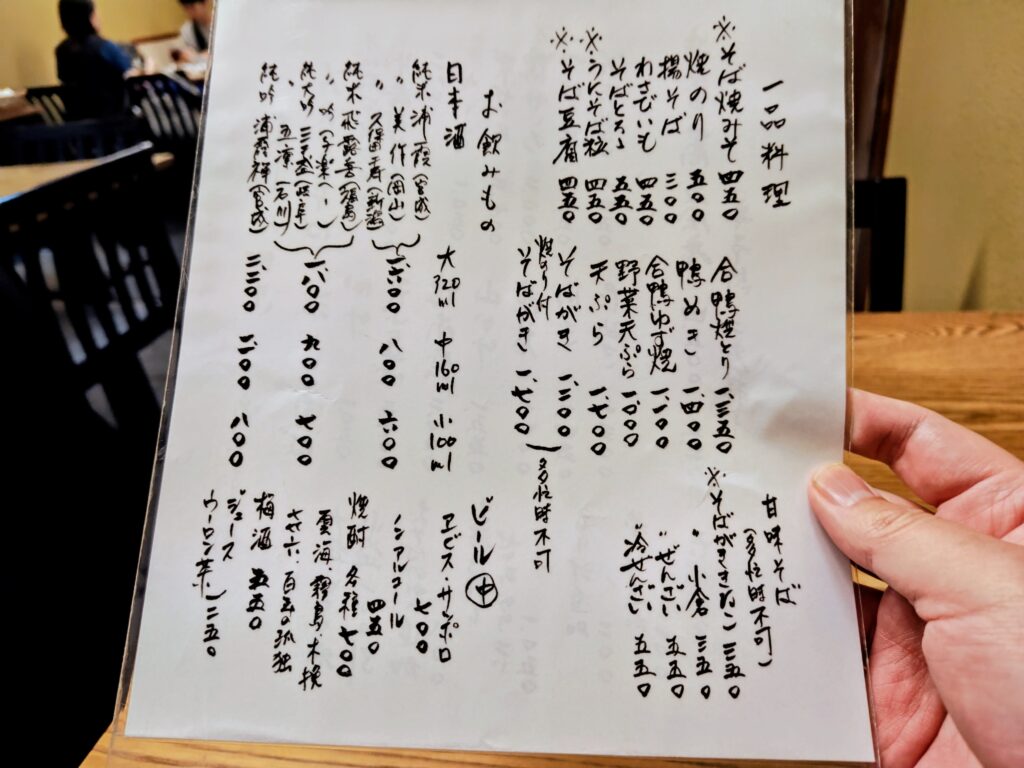 一品料理
※そば焼みそ 四五〇
焼のり 五〇〇
揚そば 三〇〇
わさびいも 四五〇
そばとろろ 五五〇
※うにそば粒 四五〇
※そば豆腐 四五〇
合鴨焼とり 一、三五〇
鴨ぬき 一、四〇〇
合鴨ゆず焼 一、一〇〇
野菜天ぷら 一、〇〇〇
天ぷら 一、七〇〇
そばがき 一、三〇〇
焼のり付そばがき 一、七〇〇
多忙時不可
甘味そば
(多忙時不可)
※そばがききなこ 三五〇
〃 小倉 三五〇
〃 ぜんざい 五五〇
〃 冷ぜんざい 五五〇
お飲みもの
日本酒
大320ml 中160ml 小100ml
純米 浦霞(宮城)
〃 美作(岡山)
久保田千寿(新潟)
一、六〇〇 八〇〇 六〇〇
純米 飛露喜(福島)
〃 吟
純大吟 三千盛(岐阜)
〃 五凛(石川)
一、八〇〇 九〇〇 七〇〇
純吟 浦霞禅(宮城)
二、二〇〇 一、一〇〇 八〇〇
ビール㊥
エビス・サッポロ 七〇〇
ノンアルコール 四五〇
焼酎 各種 七〇〇
雲海、霧島、木挽
さそ六、百年の孤独
梅酒 五五〇
ジュース
ウーロン茶 二五〇